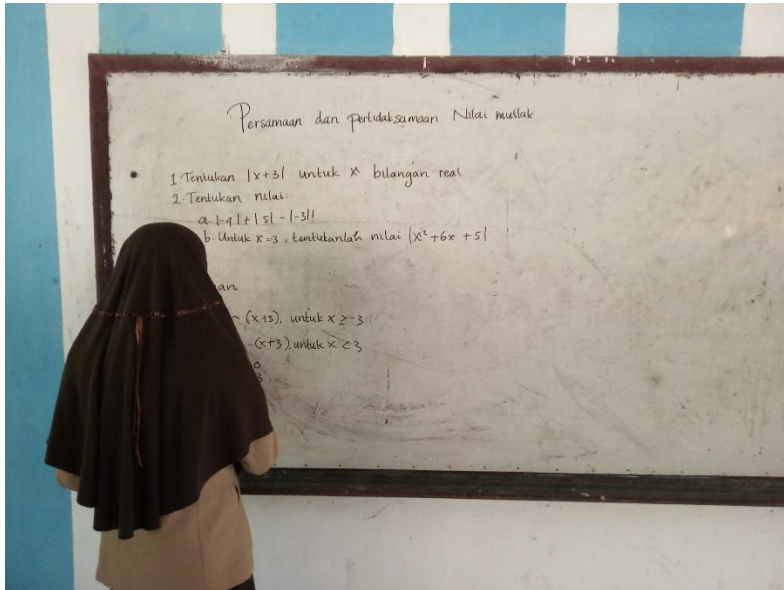 Persamaan dan pertidaksamaan Nilai mutlak
1. Tentukan |x+3| untuk x bilangan real
2. Tentukan nilai:
a. |-4|+|5|-|-3|!
b. Untuk x=3, tentukanlah nilai |x²+6x+5|
an
(x+3), untuk x ≥ -3
-(x+3), untuk x < 3
0
3